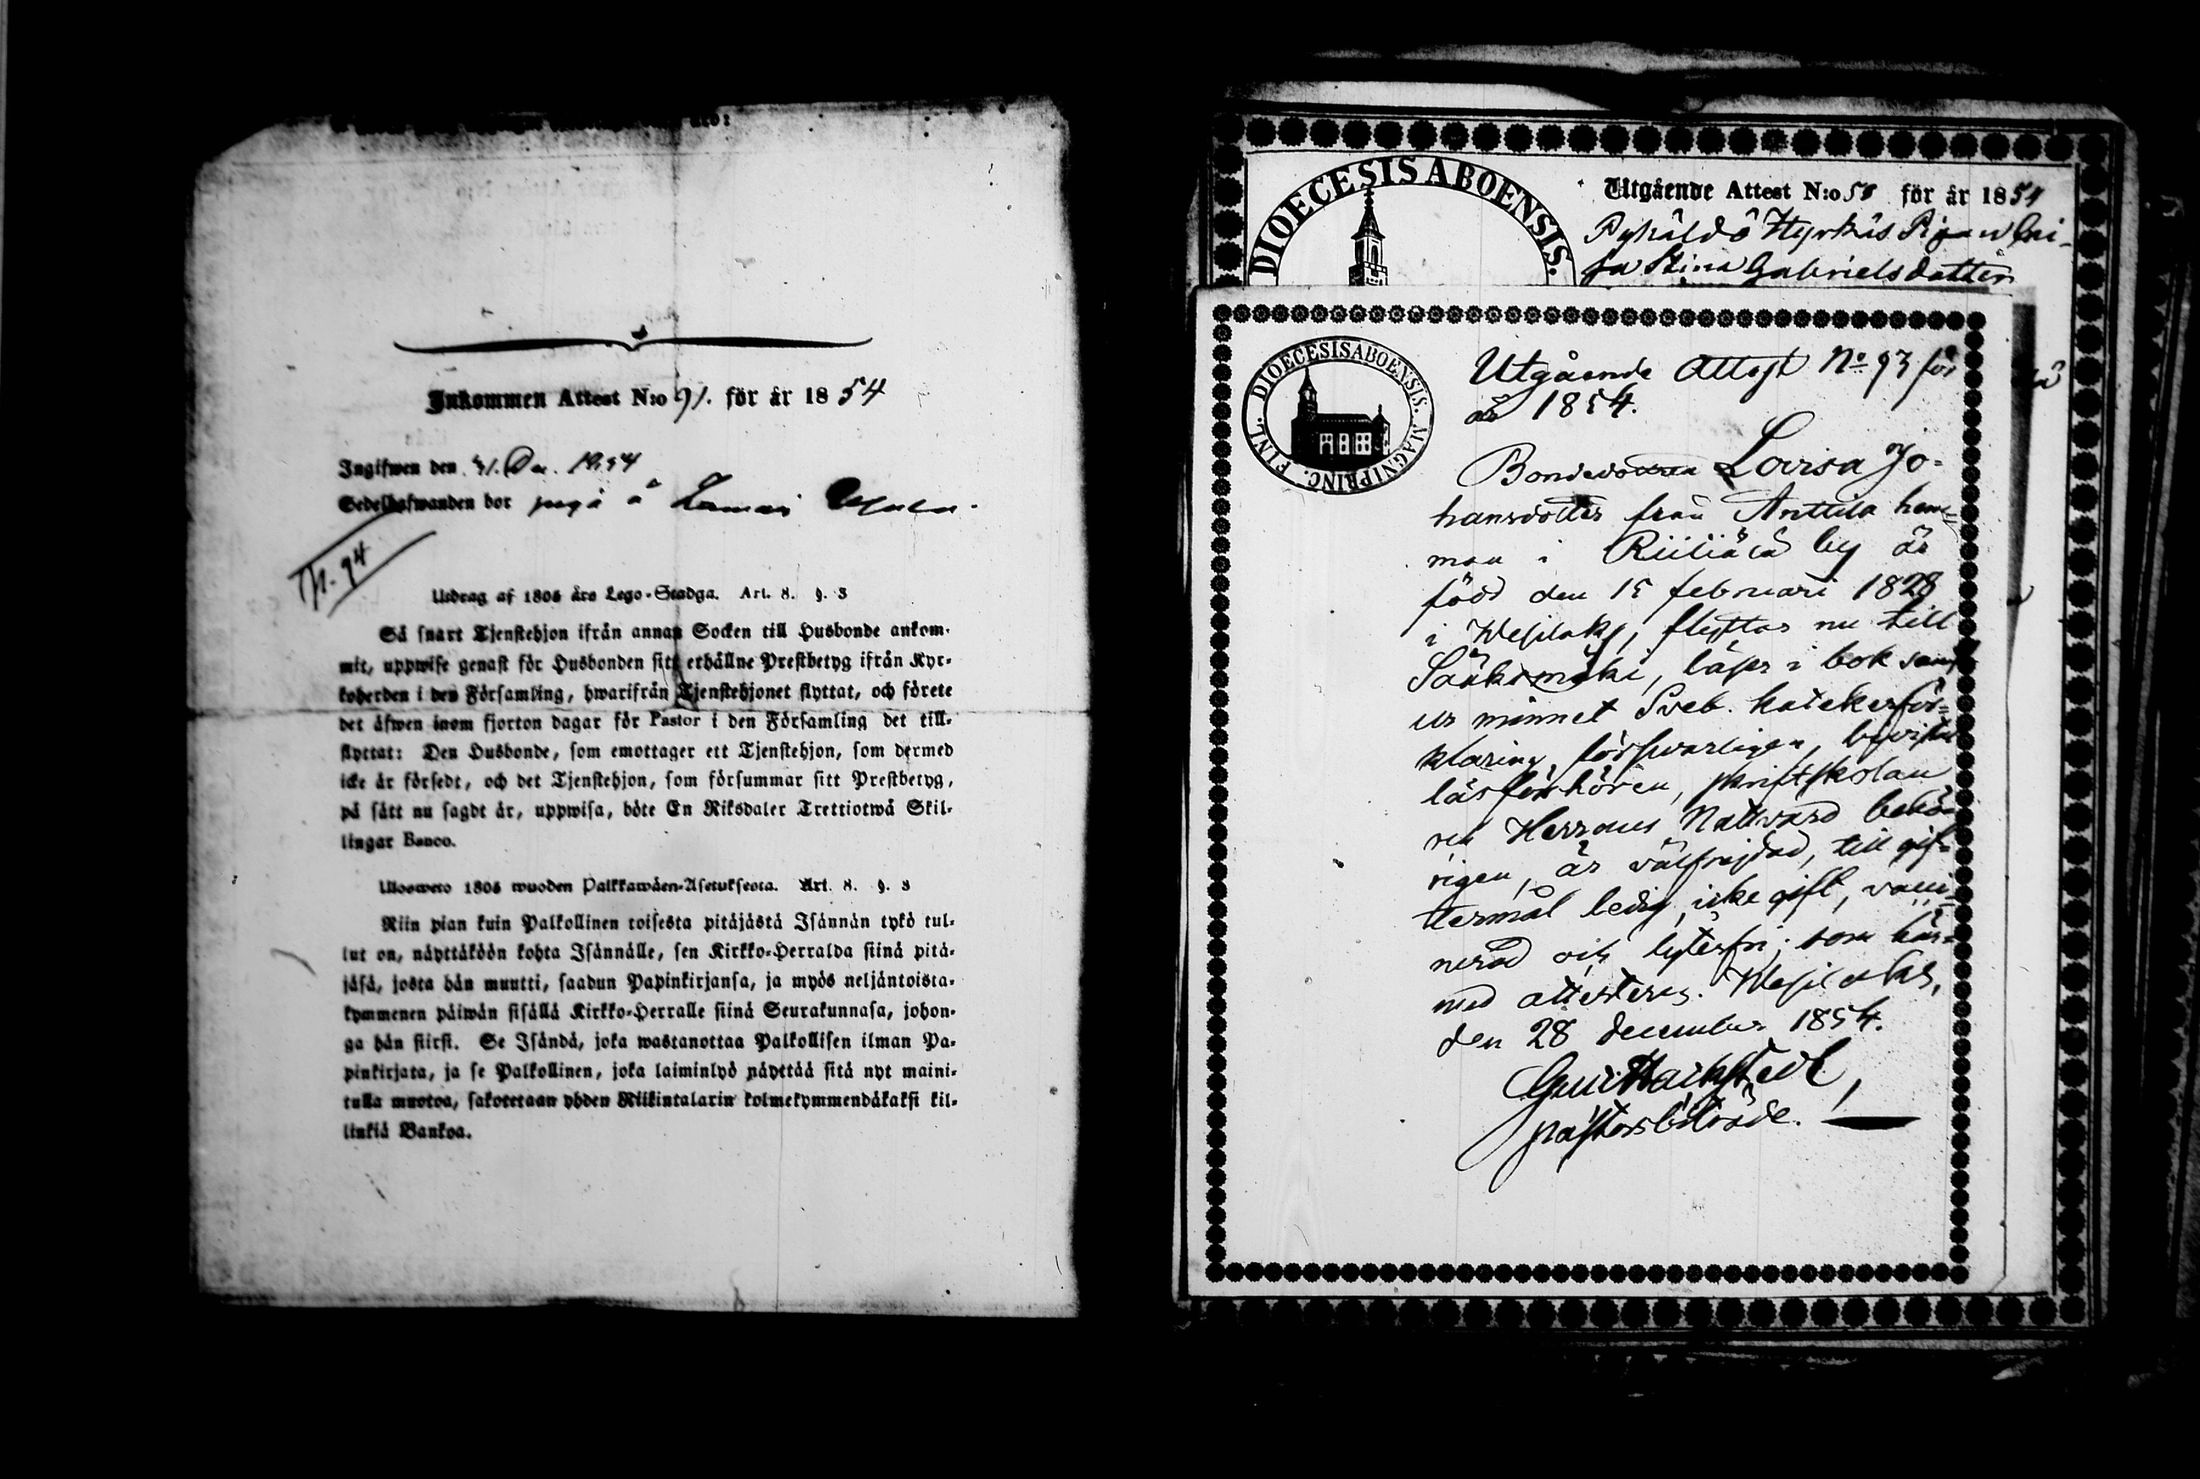 Inkommen Attest N:o 91. för år 1854
Ingifwen den 31. Dec. 1854
Sedelhafwanden bor piga å
N. 94
Utdrag af 1805 års Lego-Stadga. Art. 8. §. 3
Så snart Tjenstehjon ifrån annan Socken till Husbonde ankom-
mit, uppwise genast för Husbonden sitt erhållne Prestbetyg ifrån Kyr-
koherden i den Församling, hwarifrån Tjenstehjonet flyttat, och förete
det äfwen inom fjorton dagar för Pastor i den Församling det till-
flyttat: Den Husbonde, som emottager ett Tjenstehjon, som dermed
icke är försedt, och det Tjenstehjon, som försummar sitt Prestbetyg,
på sätt nu sagdt är, uppwisa, böte En Riksdaler Trettiotwå Skil-
lingar Banco.
Ulosweto 1805 wuoden Palkkawäen-Asetuksesta. Art. 8. §. 3
Niin pian kuin Palkollinen toisesta pitäjästä Isännän tykö tul-
lut on, näyttäköön kohta Isännälle, sen Kirkko-Herralda siinä pitä-
jäsä, josta hän muutti, saadun Papinkirjansa, ja myös neljäntoista-
kymmenen päiwän sisällä Kirkko-Herralle siinä Seurakunnasa, johon-
ga hän siirsi. Se Isändä, joka wastanottaa Palkollisen ilman Pa-
pinkirjata, ja se Palkollinen, joka laiminlyö näyttää sitä nyt maini-
tulla muotoa, sakotetaan yhden Riikintalarin kolmekymmendäkaksi kil-
linkiä Bankoa.
DIOECESIS ABOENSIS.
Utgående Attest N:o 50 för år 1854
Pyhäldö Hyrkäs Pigan Cai-
sa Stina Gabrielsdotter
DIOECESIS ABOENSIS. MAGNI PRINC. FINL.
Utgående Attest No 93 för
år 1854.
Bondedottren Lovisa Jo-
hansdotter från Anttila hem-
man i by är
född den 15 februari 1828
i Wesilaks, flyttar nu till
Sääksmäki, läser i bok samt
ur minnet Sveb. katekesför-
klaring försvarligen, bevistat
läsförhören, skriftskolan
och Herrans Nattvard behö-
rigen, är välfrejdad, till gif-
termål ledig, icke gift, vacci-
nerad och lytesfri; som här-
med attesteras. Wesilaks,
den 28 december 1854.
pastorsbiträde.